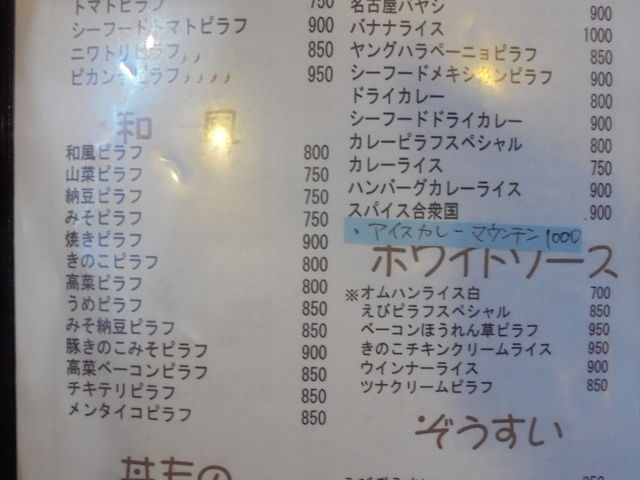 トマトピラフ 750
シーフードトマトピラフ 900
ニワトリピラフ 850
ピカンテピラフ 950
和風
和風ピラフ 800
山菜ピラフ 750
納豆ピラフ 750
みそピラフ 750
焼きピラフ 900
きのこピラフ 800
高菜ピラフ 800
うめピラフ 850
みそ納豆ピラフ 850
豚きのこみそピラフ 900
高菜ベーコンピラフ 850
チキテリピラフ 850
メンタイコピラフ 850
丼もの
名古屋ハヤシ 900
バナナライス 1000
ヤングハラペーニョピラフ 850
シーフードメキシカンピラフ 900
ドライカレー 800
シーフードドライカレー 900
カレーピラフスペシャル 800
カレーライス 750
ハンバーグカレーライス 900
スパイス合衆国 900
・アイスカレーマウンテン 1000
ホワイトソース
※オムハンライス白 700
えびピラフスペシャル 850
ベーコンほうれん草ピラフ 950
きのこチキンクリームライス 950
ウインナーライス 900
ツナクリームピラフ 850
ぞうすい